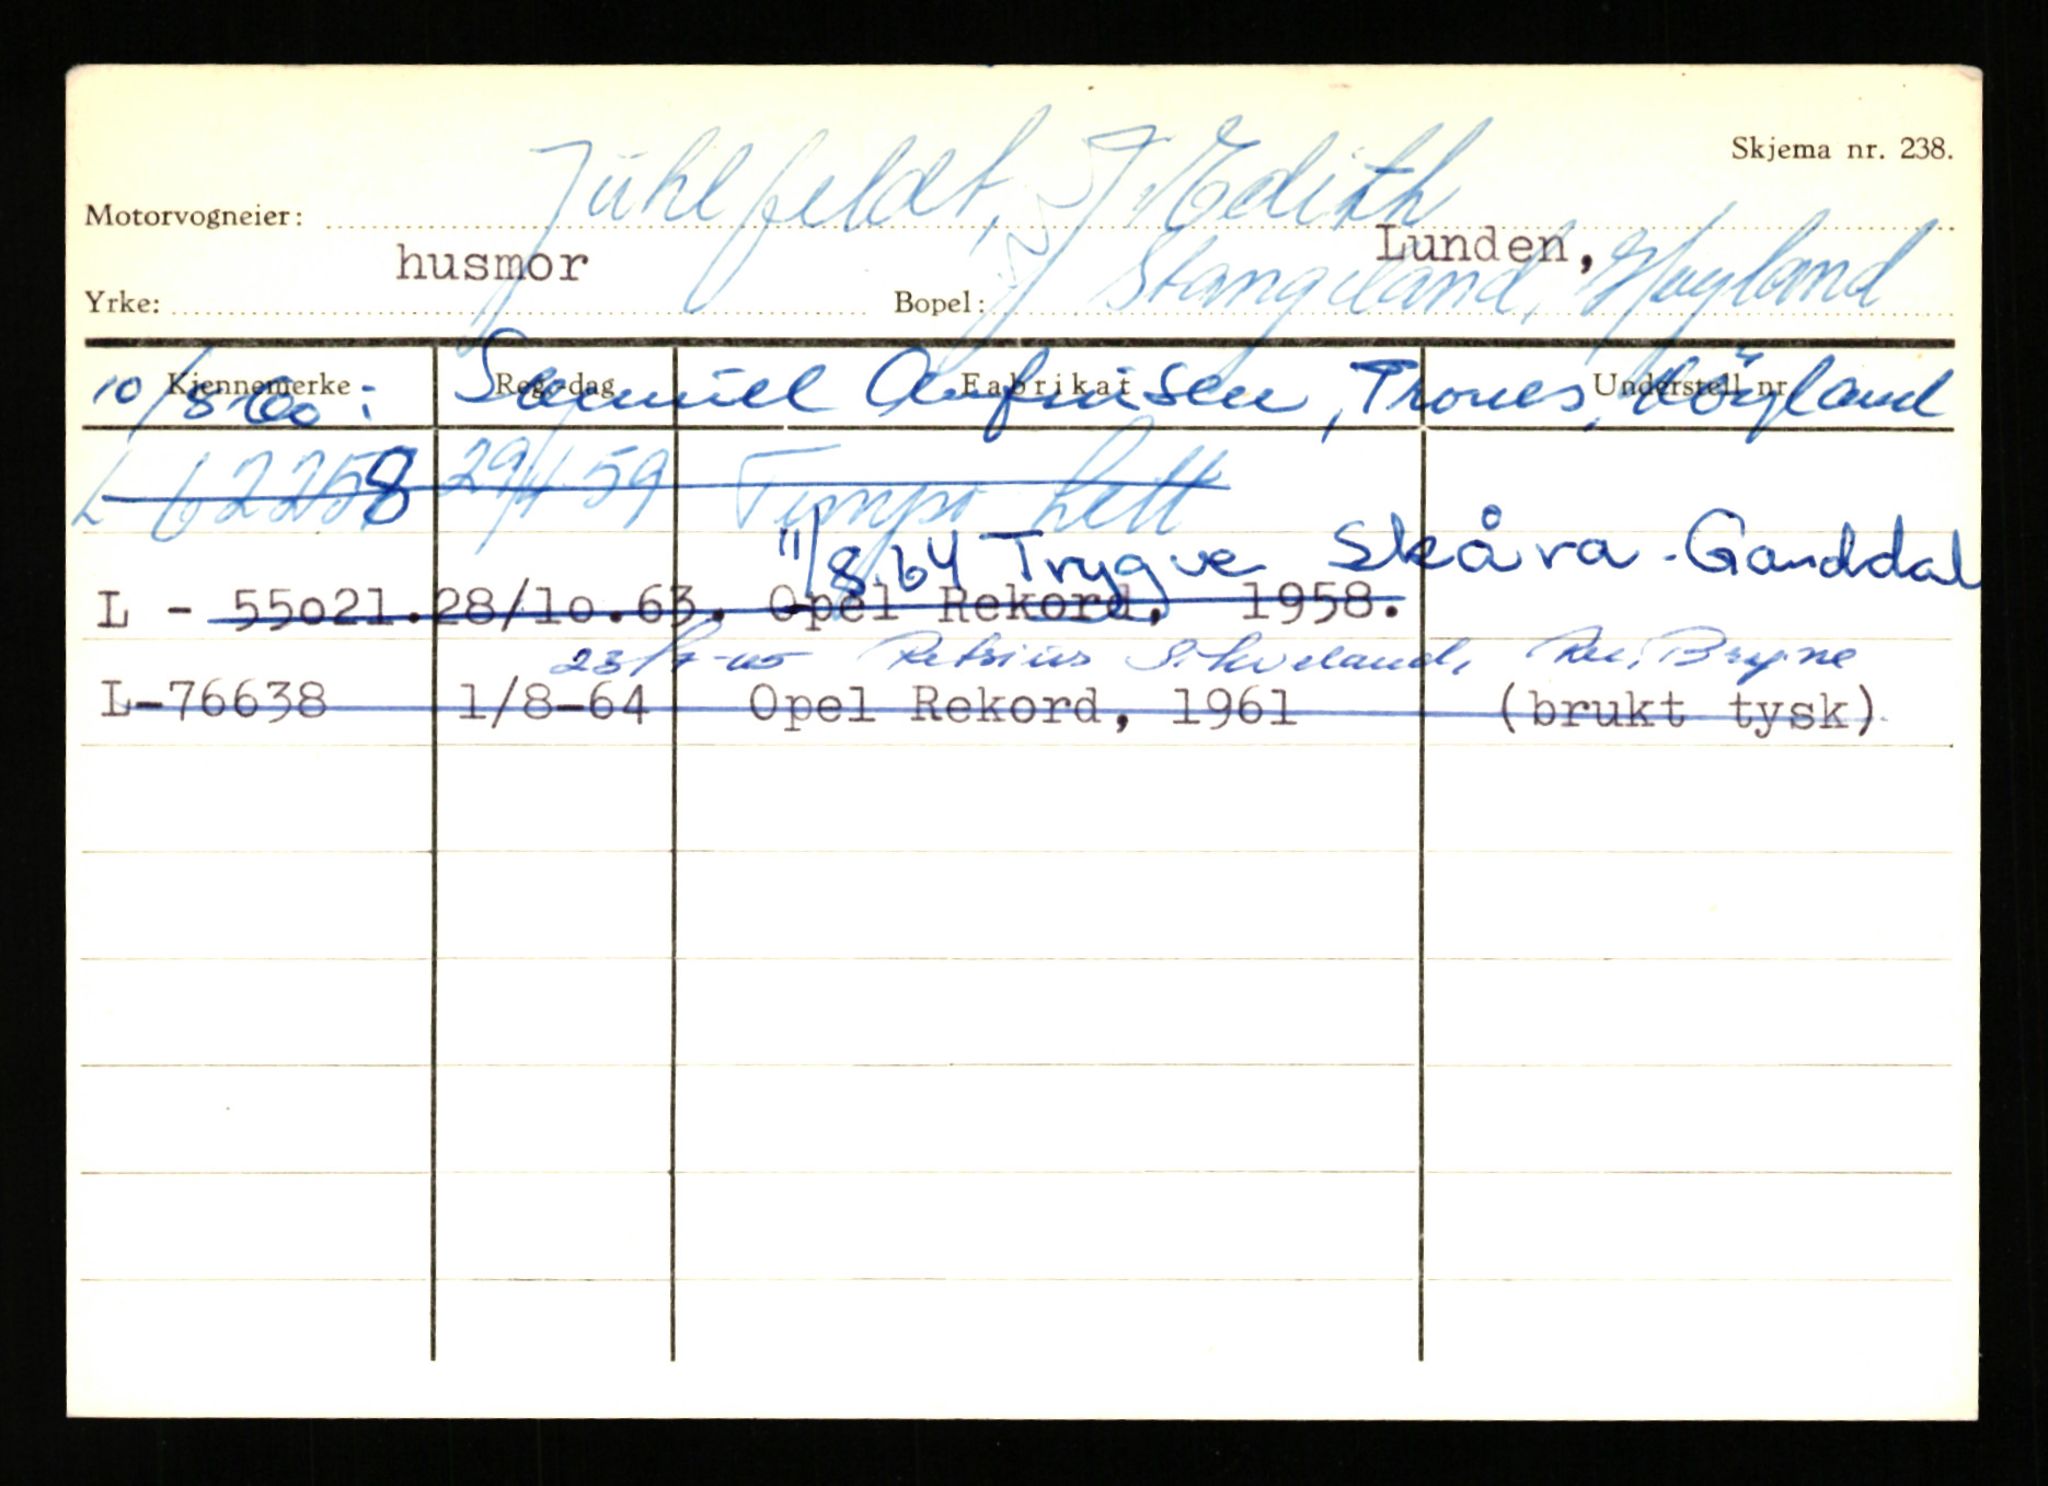 Skjema nr. 238.
Motorvogneier: Jühlfeldt, Edith
husmor Lunden,
Yrke: Bopel: Stangeland, Høyland
Kjennemerke Reg.-dag Fabrikat Understell nr.
10/8 60: Samuel Aufinsen, Trones, Höyland
L 62258 29/4 59 Tempo Lett
11/8.64 Trygve Skåra - Ganddal
L - 55o21. 28/1o.63. Opel Rekord, 1958.
Petrius S. Kverland, Bryne
L-76638 1/8-64 Opel Rekord, 1961 (brukt tysk)